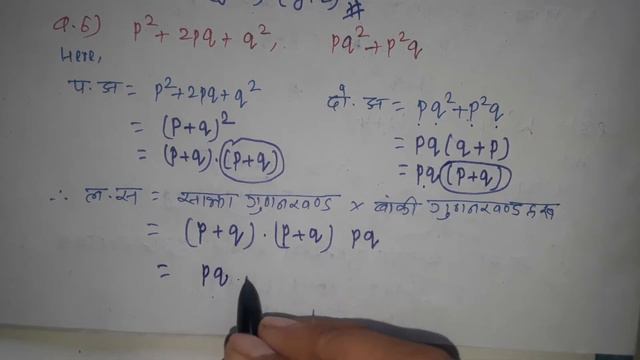 Q.5) p² + 2pq + q², pq² + p²q
Here,
प. अ = p² + 2pq + q²
= (p+q)²
= (p+q) . (p+q)
दो. अ = pq² + p²q
= pq (q+p)
= pq (p+q)
∴ ल. स = साझा गुणनखण्ड × बाँकी गुणनखण्डहरू
= (p+q) . (p+q) pq
= pq .